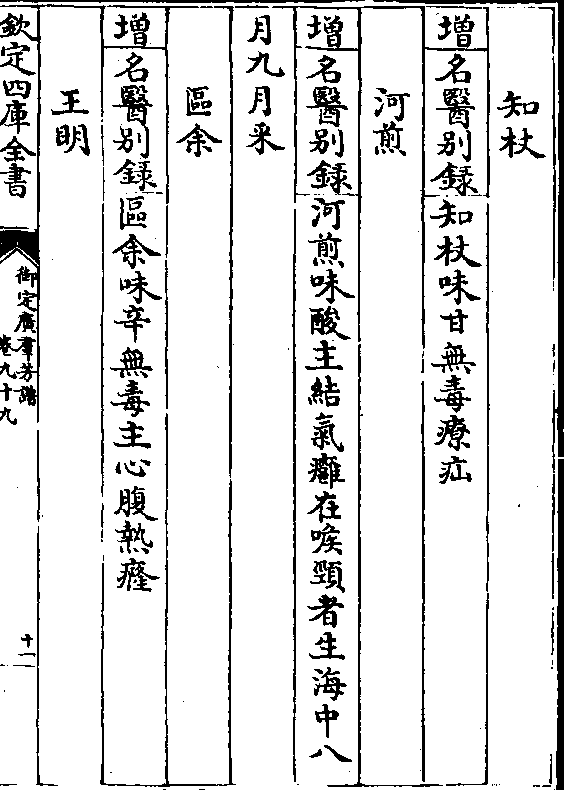 知杖
增名醫别録知杖味甘無毒療疝
河煎
增名醫别録河煎味酸主結氣癰在喉頸者生海中八
月九月采
區余
增名醫别録區余味辛無毒主心腹熱癃
王明
欽定四庫全書
御定廣羣芳譜
卷九十九
十一